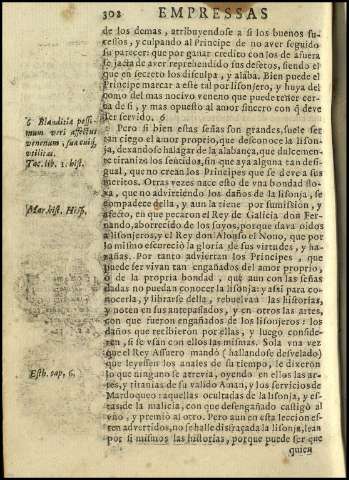 302 EMPRESSAS
de los demas, atribuyendose a si los buenos su-
cessos, y culpando al Principe de no aver seguido
su parecer: que por ganar credito con los de afuera
se jacta de aver reprehendido sus defetos, siendo el
que en secreto los disculpa, y alaba. Bien puede el
Principe marcar a este tal por lisonjero, y huya del
como del mas nocivo veneno que puede tener cer-
ca de si, y mas opuesto al amor sincero con q̃ deve
ser servido. 6
6 Blanditia pessi-
mum veri affectus
venenum, sua cuiq;
vtilitas.
Tac. lib. 1. hist.
Pero si bien estas señas son grandes, suele ser
tan ciego el amor proprio, que desconoce la lison-
ja, dexandose halagar de la alabança, que dulcemen-
te tiraniza los sentidos, sin que aya alguna tan desi-
gual, que no crean los Principes que se deve a sus
meritos. Otras vezes nace esto de vna bondad flo-
xa, que no advirtiendo los daños de la lisonja, se
compadece della, y aun la tiene por sumission, y
afecto, en que pecaron el Rey de Galicia don Fer-
nando, aborrecido de los suyos, porque dava oidos
a lisonjeros, y el Rey don Alonso el Nono, que por
lo mismo escureciò la gloria de sus virtudes, y ha-
zañas. Por tanto adviertan los Principes, que
puede ser vivan tan engañados del amor proprio,
ò de la propria bondad, que aun con las señas
dadas no puedan conocer la lisonja: y assi para co-
nocerla, y librarse della, rebuelvan las historias,
y noten en sus antepassados, y en otros las artes,
con que fueron engañados de los lisonjeros: los
daños que recibieron por ellas, y luego conside-
ren, si se vsan con ellos las mismas. Sola vna vez
que el Rey Assuero mandò (hallandose desvelado)
que leyessen los anales de su tiempo, le dixeron
lo que ninguno se atrevia, oyendo en ellos las ar-
tes, y tiranias de su valido Aman, y los servicios de
Mardoqueo: aquellas ocultadas de la lisonja, y es-
tas de la malicia, con que desengañado castigò al
vno, y premiò al otro. Pero aun en esta leccion es-
ten advertidos, no se halle disfraçada la lisonja, lean
por si mismos las historias, porque puede ser que
Mar. hist. Hisp.
Esth. cap. 6.
quien